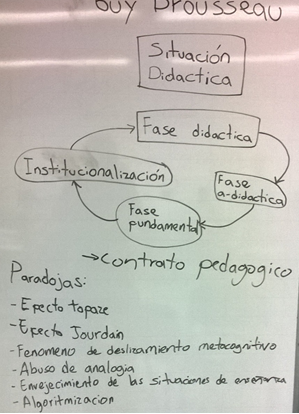 Guy Brousseau
Situación
Didactica
Fase didactica
Institucionalización
Fase
a-didactica
Fase
fundamental
→ Contrato pedagogico
Paradojas:
- Efecto topaze
- Efecto Jourdain
- Fenomeno de deslizamiento metacognitivo
- Abuso de analogia
- Envejecimiento de las situaciones de enseñanza
- Algoritmizacion